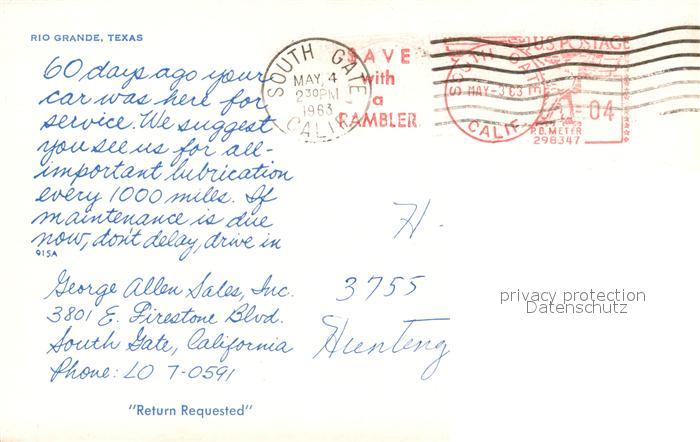 RIO GRANDE, TEXAS
60 days ago your
car was here for
service. We suggest
you see us for all-
important lubrication
every 1000 miles. If
maintenance is due
now, don't delay, drive in
915A
George Allen Sales, Inc.
3801 E. Firestone Blvd.
South Gate, California
Phone: LO 7-0591
"Return Requested"
SOUTH GATE,
MAY, 4
230PM
1963
CALIF.
SAVE
with
a
RAMBLER
U.S. POSTAGE
SOUTH GATE
MAY-3'63
CALIF.
04
P.B. METER
298347
H.
3755
Hunting
privacy protection
Datenschutz